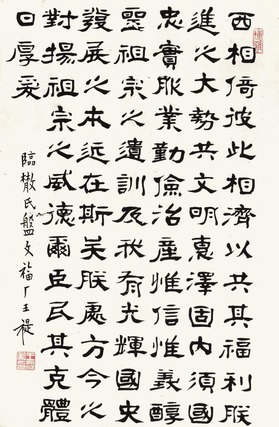 西相倚彼此相濟以共其福利朕
進之大勢共文明惠澤固内須國
忠實服業勤儉治產惟信惟義醇
聖祖宗之遺訓及我有光輝國史
發展之本近在斯矣朕處方今之
對揚祖宗之威德爾臣民其克體
日厚爰
臨散氏盤文福厂王禔